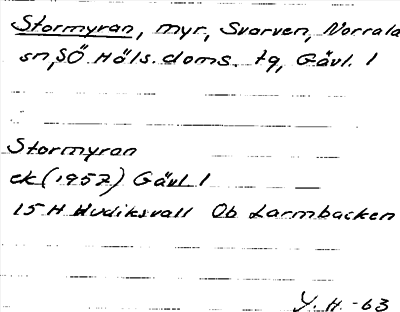 Stormyran, myr, Svarven, Norrala
sn, SÖ. Häls. doms. tg, Gävl. l
Stormyran
ek (1957) Gävl l
15 H Hudiksvall Ob Larmbacken
Y. H. -63